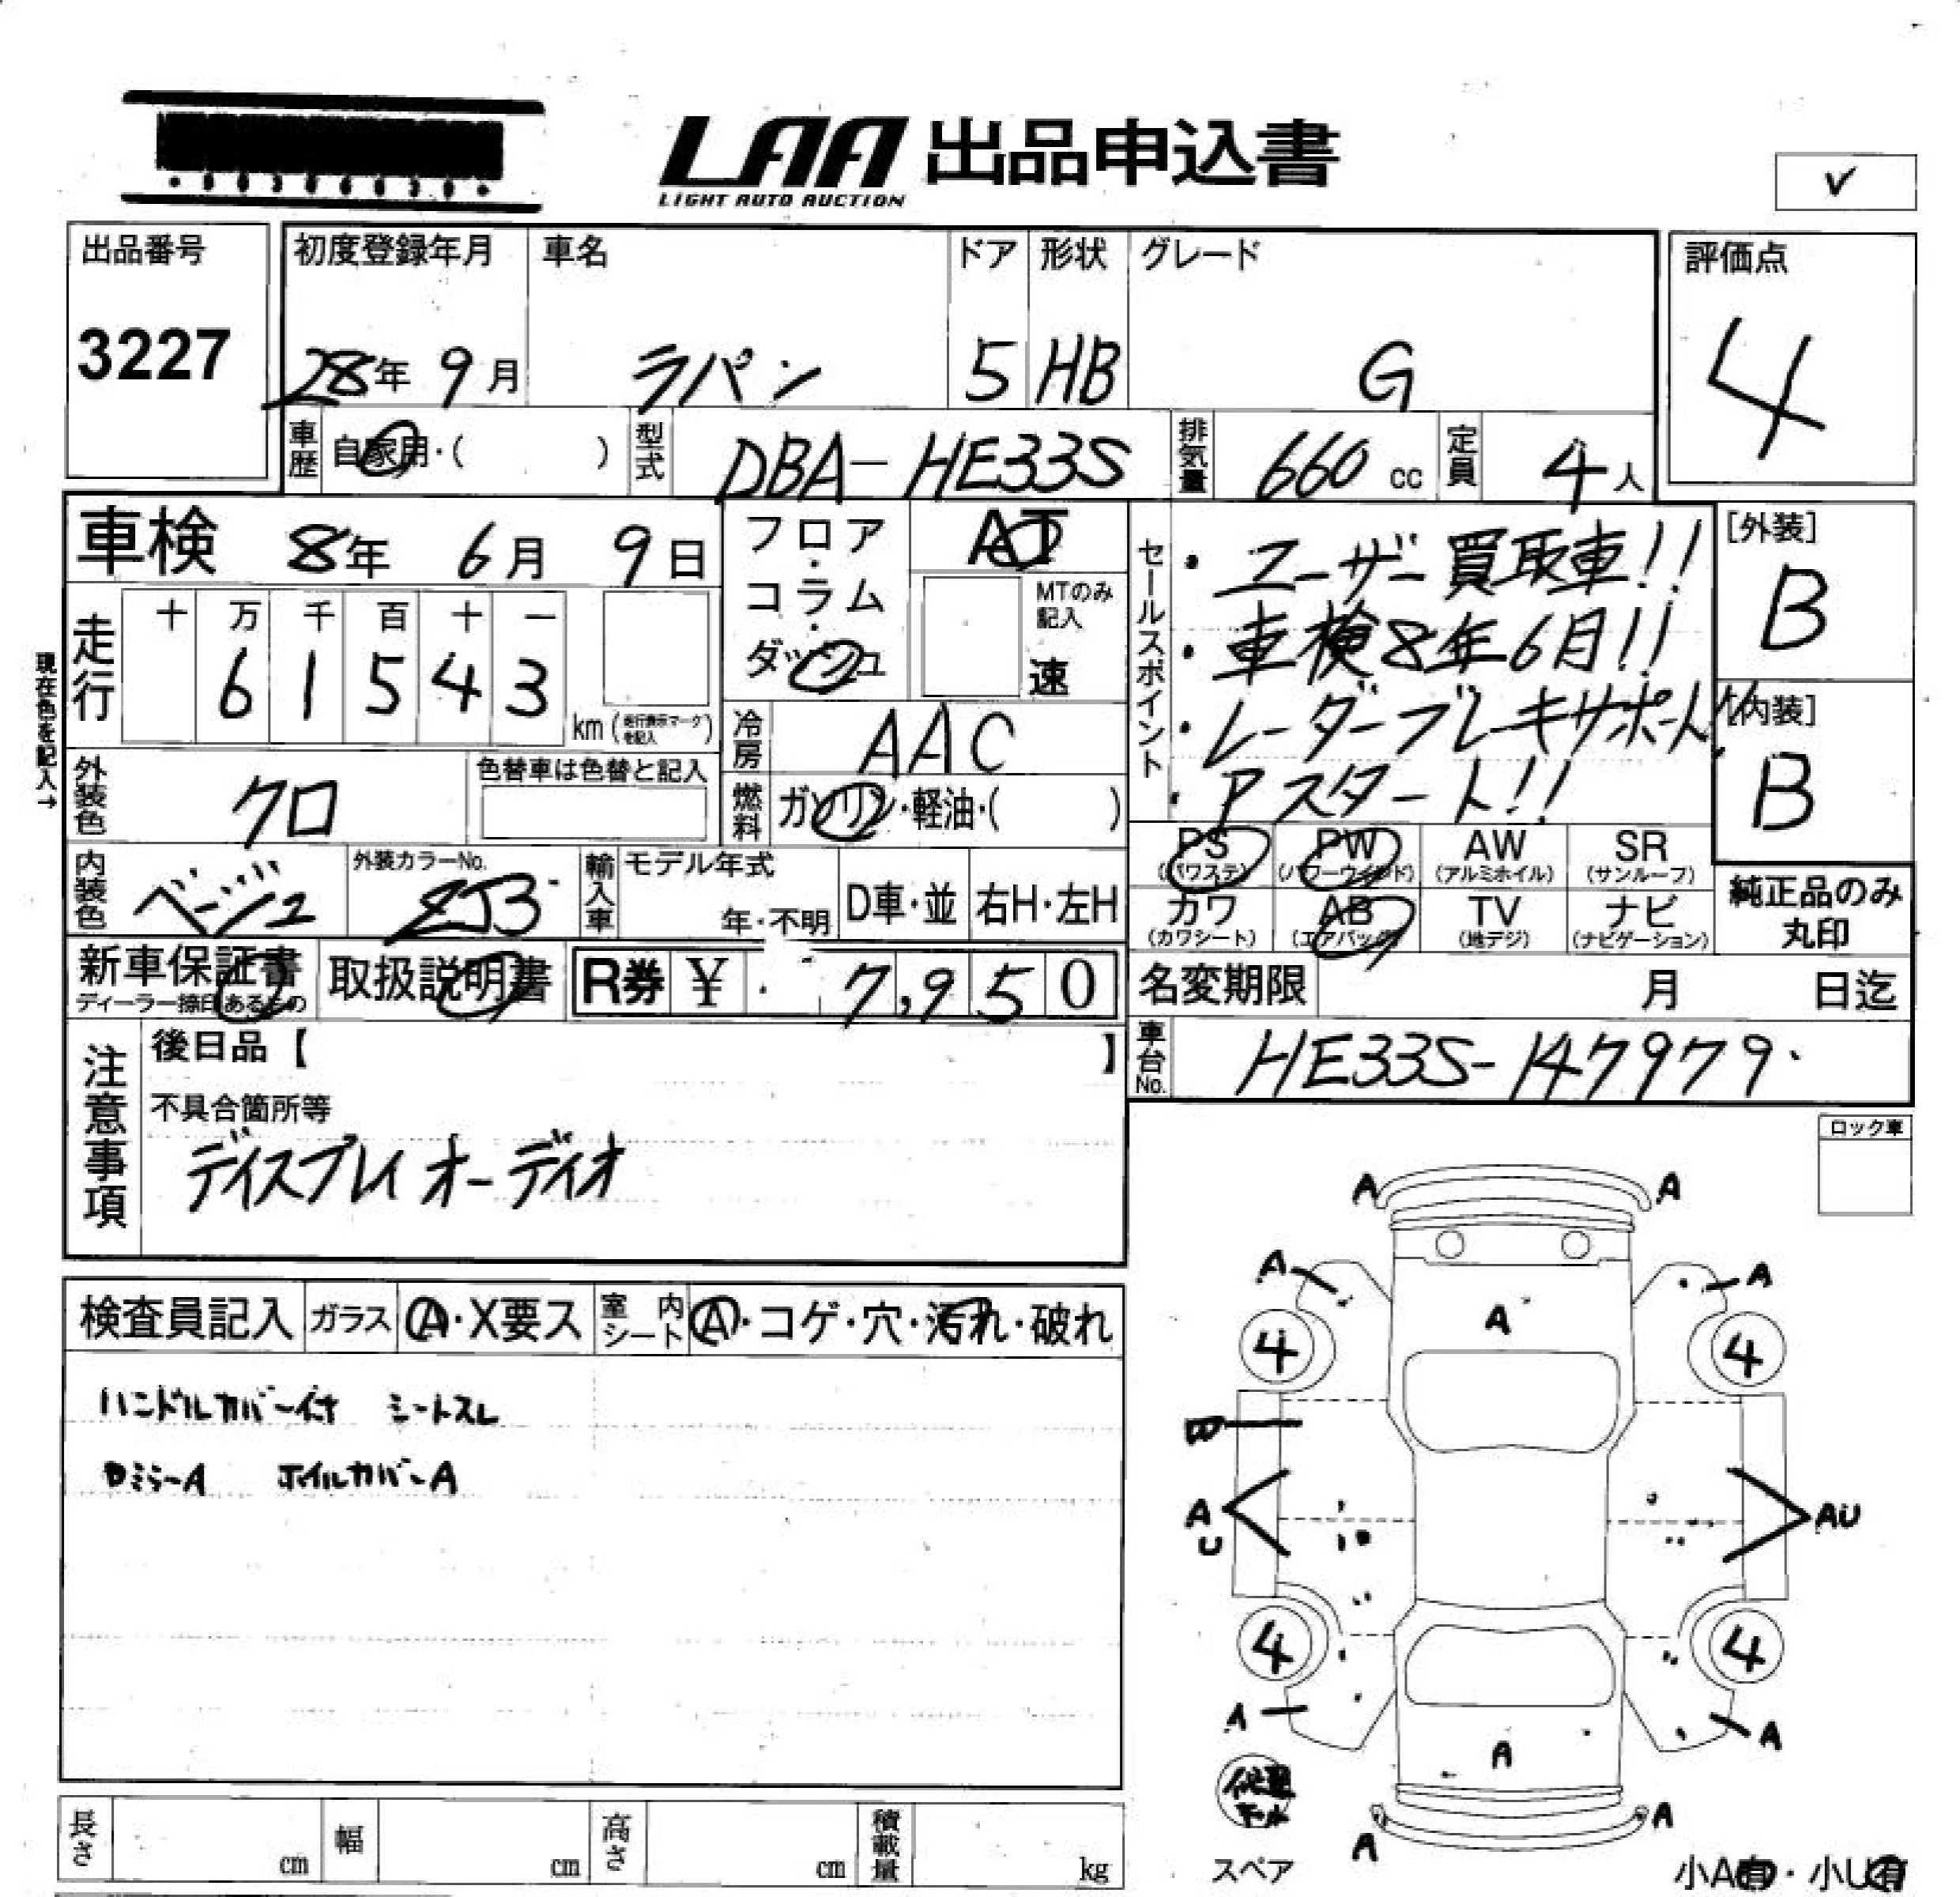 LAA 出品申込書
LIGHT AUTO AUCTION
✓
出品番号
3227
初度登録年月
28年 9月
車名
ラパン
ドア
5
形状
HB
グレード
G
評価点
4
車歴 自家用・( )
型式 DBA-HE33S
排気量 660 cc
定員 4人
車検 8年 6月 9日
フロア・コラム・ダッシュ
AT
MTのみ記入
速
セールスポイント
・ユーザー買取車!!
・車検8年6月!!
・レーダーブレーキサポート!!
・Pスタート!!
[外装]
B
[内装]
B
現在色を記入→
走行
十 万 千 百 十 一
6 1 5 4 3
km (走行表示マークを記入)
冷房 AAC
外装色 クロ
色替車は色替と記入
燃料 ガソリン・軽油・( )
内装色 ベージュ
外装カラーNo.
ZJ3
輸入車
モデル年式
年・不明
D車・並
右H・左H
PS (パワステ)
PW (パワーウィンド)
AW (アルミホイル)
SR (サンルーフ)
カワ (カワシート)
AB (エアバッグ)
TV (地デジ)
ナビ (ナビゲーション)
純正品のみ
丸印
新車保証書
ディーラー捺印あるもの
取扱説明書
R券 ¥ 7,950
名変期限 月 日迄
車台No. HE33S-147979
注意事項
後日品【 】
不具合箇所等
ディスプレイオーディオ
ロック車
検査員記入
ガラス A・X要ス
室内シート A・コゲ・穴・汚れ・破れ
ハンドルカバー付 シートスレ
DミラーA ホイルカバーA
A A
A A
A
4 4
A
U
AU
4 4
A A
A
修理
キット
A A
スペア
小A有・小U有
長さ cm
幅 cm
高さ cm
積載量 kg